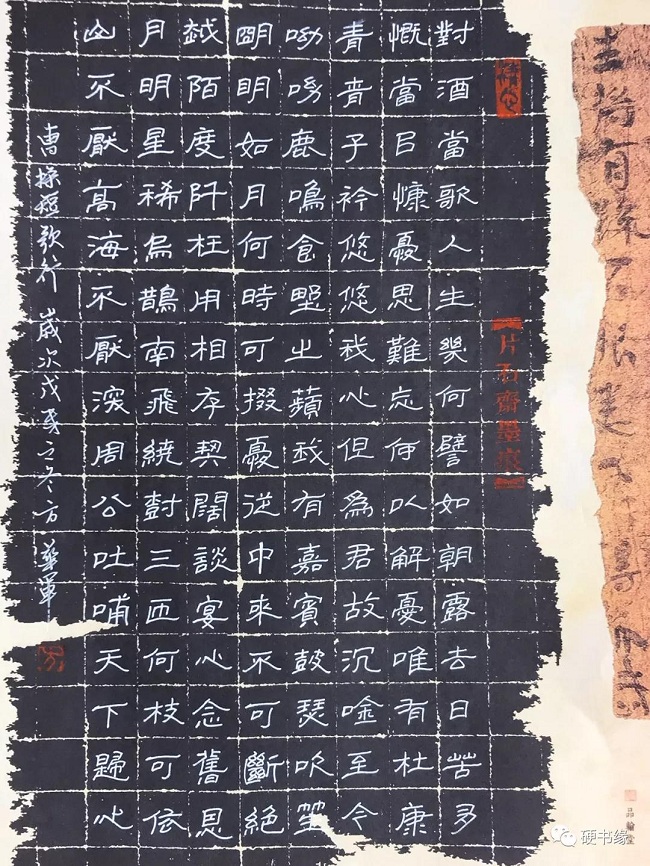 片石齋墨痕
對酒當歌人生幾何譬如朝露去日苦多
慨當㠯慷憂思難忘何以解憂唯有杜康
青青子衿悠悠我心但為君故沉唫至今
呦呦鹿鳴食野之蘋我有嘉賓鼓瑟吹笙
明明如月何時可掇憂從中來不可斷絕
越陌度阡枉用相存契闊談宴心念舊恩
月明星稀烏鵲南飛繞樹三匝何枝可依
山不厭高海不厭深周公吐哺天下歸心
曹操短歌行 歲次戊戌之冬方華軍
硬书缘